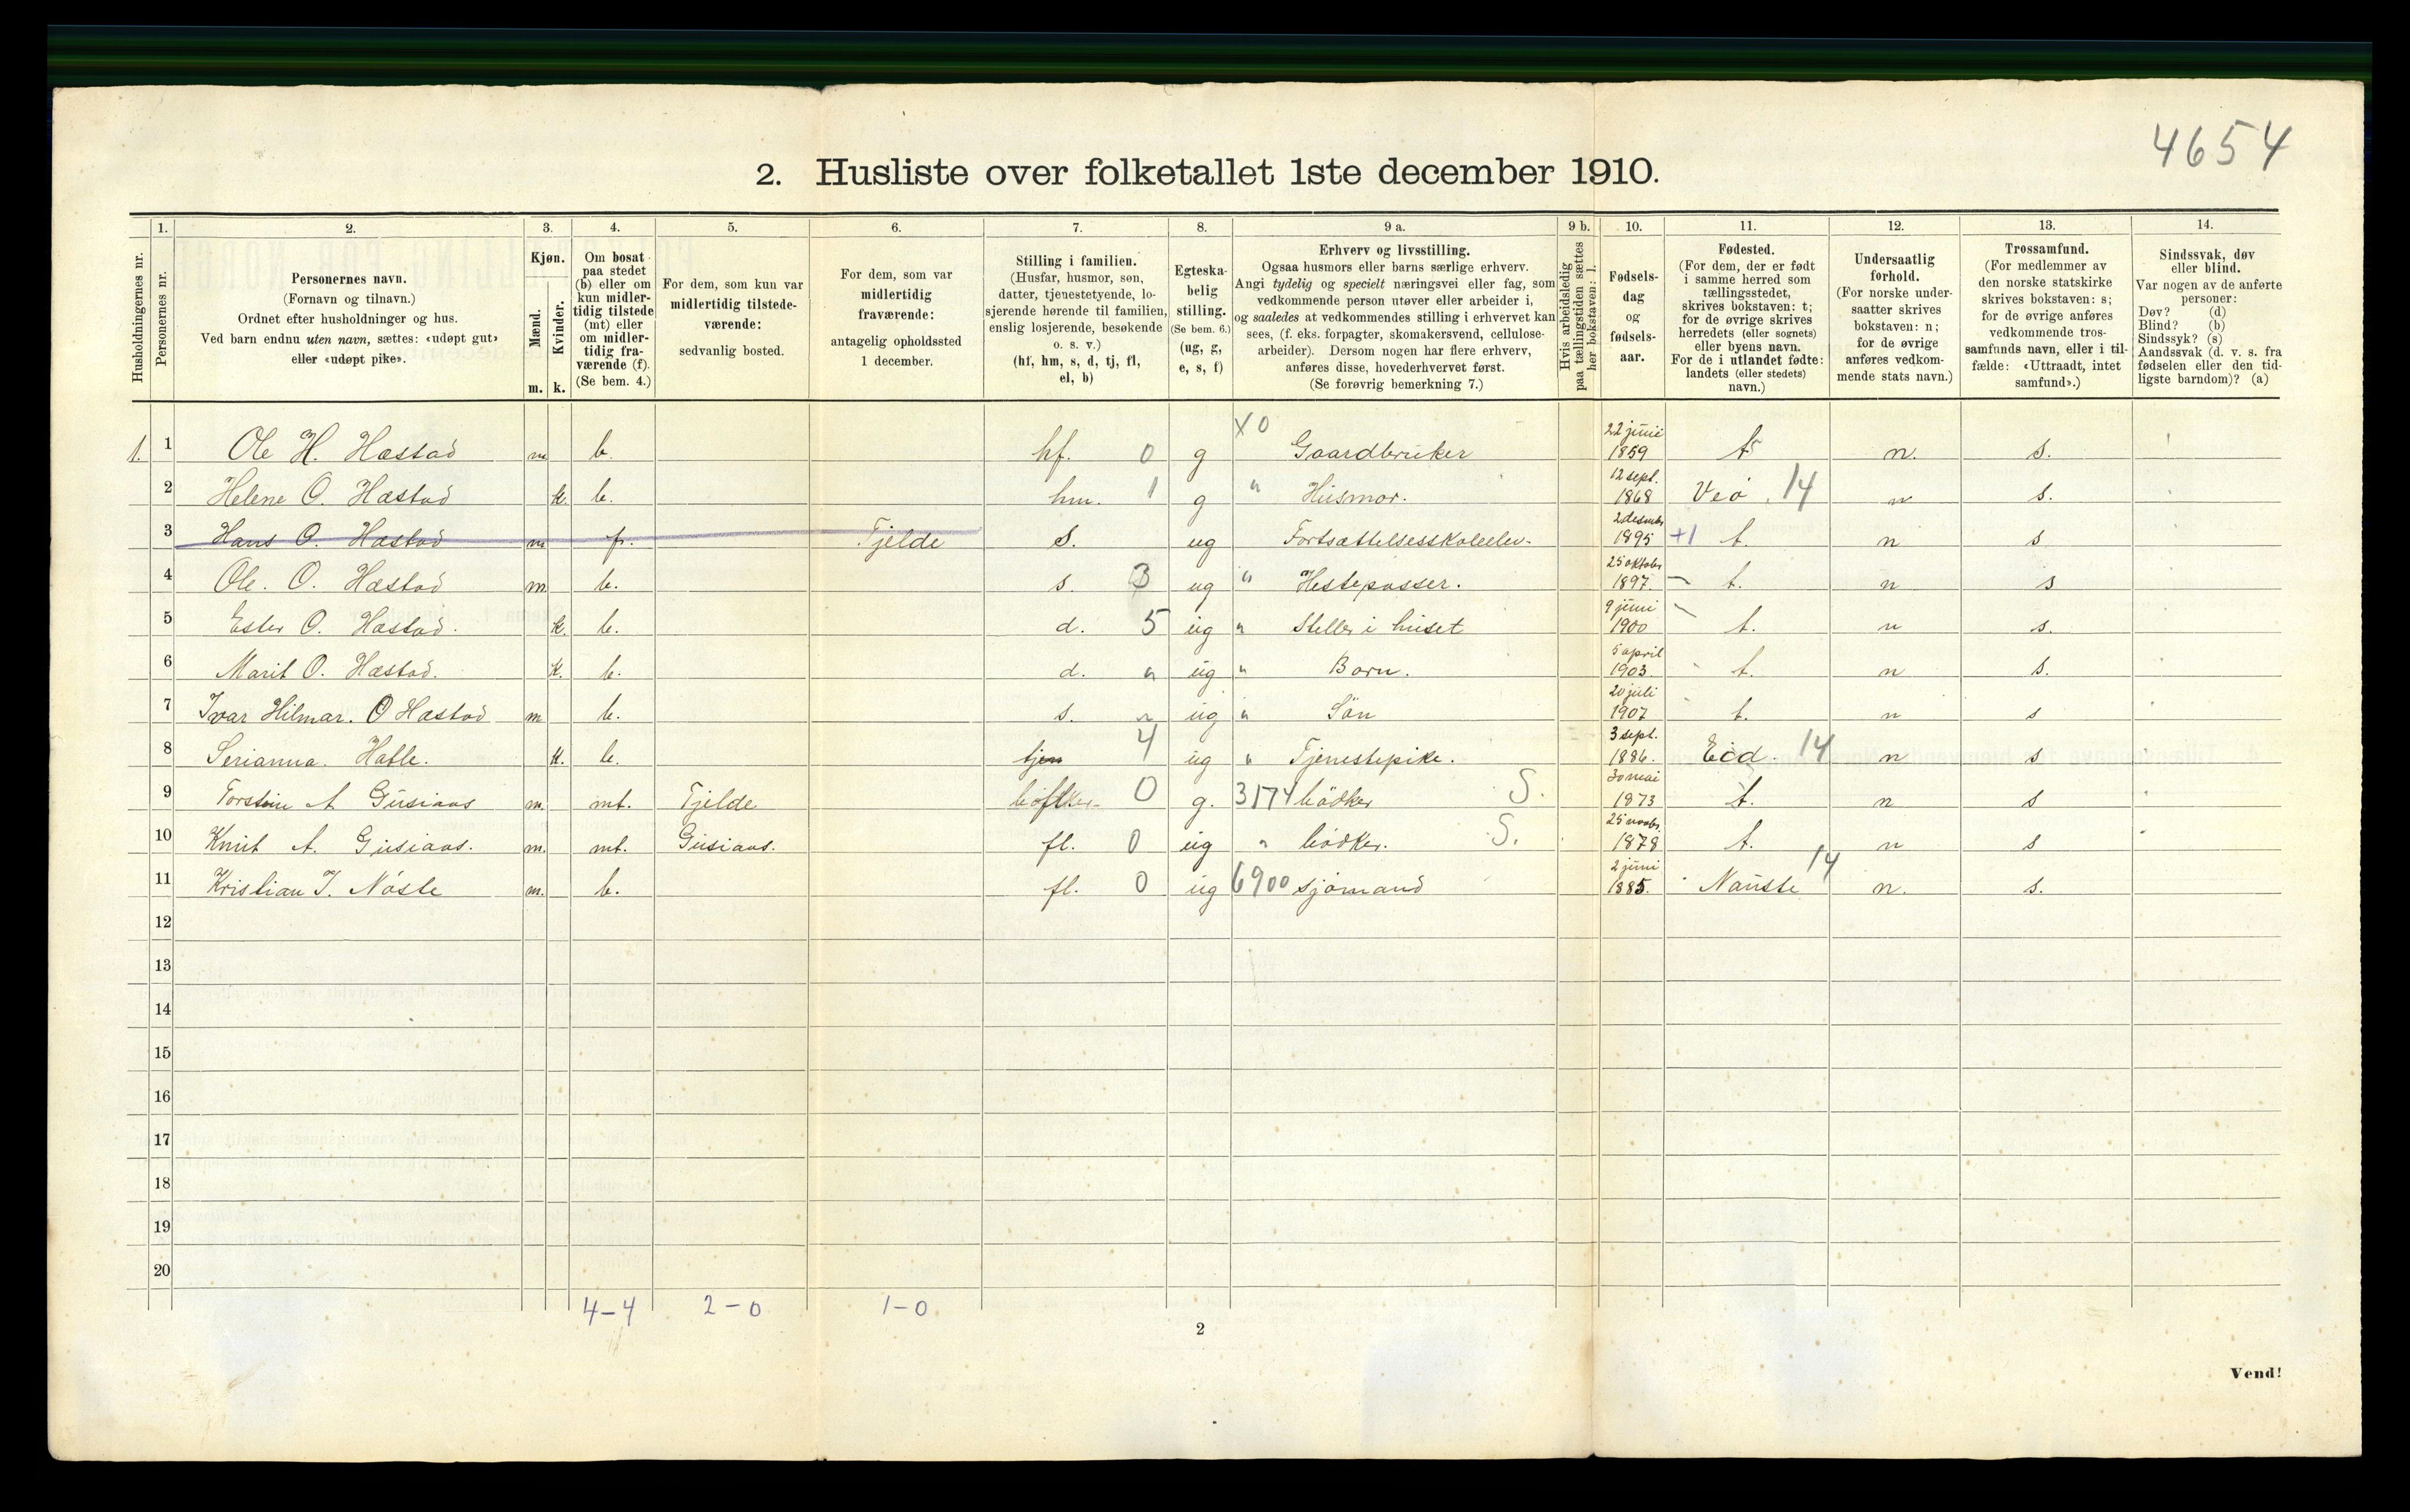 4654
2. Husliste over folketallet 1ste december 1910.
1. 2. 3. 4. 5. 6. 7. 8. 9 a. 9 b. 10. 11. 12. 13. 14.
Husholdningernes nr.
Personernes nr.
Personernes navn.
(Fornavn og tilnavn.)
Ordnet efter husholdninger og hus.
Ved barn endnu uten navn, sættes: «udøpt gut»
eller «udøpt pike».
Kjøn.
Mænd.
Kvinder.
m. k.
Om bosat
paa stedet
(b) eller om
kun midler-
tidig tilstede
(mt) eller
om midler-
tidig fra-
værende (f).
(Se bem. 4.)
For dem, som kun var
midlertidig tilstede-
værende:
sedvanlig bosted.
For dem, som var
midlertidig
fraværende:
antagelig opholdssted
1 december.
Stilling i familien.
(Husfar, husmor, søn,
datter, tjenestetyende, lo-
sjerende hørende til familien,
enslig losjerende, besøkende
o. s. v.)
(hf, hm, s, d, tj, fl,
el, b)
Egteska-
belig
stilling.
(Se bem. 6.)
(ug, g,
e, s, f)
Erhverv og livsstilling.
Ogsaa husmors eller barns særlige erhverv.
Angi tydelig og specielt næringsvei eller fag, som
vedkommende person utøver eller arbeider i,
og saaledes at vedkommendes stilling i erhvervet kan
sees, (f. eks. forpagter, skomakersvend, cellulose-
arbeider). Dersom nogen har flere erhverv,
anføres disse, hovederhvervet først.
(Se forøvrig bemerkning 7.)
Hvis arbeidsledig
paa tællingstiden sættes
her bokstaven: l.
Fødsels-
dag
og
fødsels-
aar.
Fødested.
(For dem, der er født
i samme herred som
tællingsstedet,
skrives bokstaven: t;
for de øvrige skrives
herredets (eller sognets)
eller byens navn.
For de i utlandet fødte:
landets (eller stedets)
navn.)
Undersaatlig
forhold.
(For norske under-
saatter skrives
bokstaven: n;
for de øvrige
anføres vedkom-
mende stats navn.)
Trossamfund.
(For medlemmer av
den norske statskirke
skrives bokstaven: s;
for de øvrige anføres
vedkommende tros-
samfunds navn, eller i til-
fælde: «Uttraadt, intet
samfund».)
Sindssvak, døv
eller blind.
Var nogen av de anførte
personer:
Døv? (d)
Blind? (b)
Sindssyk? (s)
Aandssvak (d. v. s. fra
fødselen eller den tid-
ligste barndom)? (a)
1. 1 Ole H. Hæstad m b. hf. 0 g X0 Gaardbruker 22 juni 1859 t n. s.
2 Helene O. Hæstad k. b. hm. 1 g " Husmor. 12 sept. 1868 Veø. 14 n s.
3 Hans O. Hæstad m fr. Tjelde s. ug Fortsættelsesskoleelev. 2 desember 1895 +1 t. n s
4 Ole. O. Hæstad m. b. s. 3 ug " Hestepasser. 25 oktobr 1897 t. n s
5 Ester O. Hæstad. k. b. d. 5 ug " Steller i huset 9 juni 1900 t. n s.
6 Marit O. Hæstad. k. b. d. " ug " Barn. 5 april 1903. t. n s.
7 Ivar Hilmar. O Hæstad m b. s. " ug " Søn 20 juli 1907 t. n s
8 Serianna. Hatle. k. b. tjen 4 ug " Tjenestepike. 3 sept. 1886. Eid. 14 n s
9 Torstein A Gusiaas m. mt. Tjelde 0 g. 3174 bødker S. 30 mai 1873 t. n s
10 Knut A. Gusiaas. m. mt. Gusiaas. fl. 0 ug " bødker. S. 25 novbr. 1878 t. n s
11 Kristian J. Nøste m. b. fl. 0 ug 6900 sjømand 2 juni 1885. Nauste 14 n. s.
12
13
14
15
16
17
18
19
20
4-4 2-0 1-0
2
Vend!